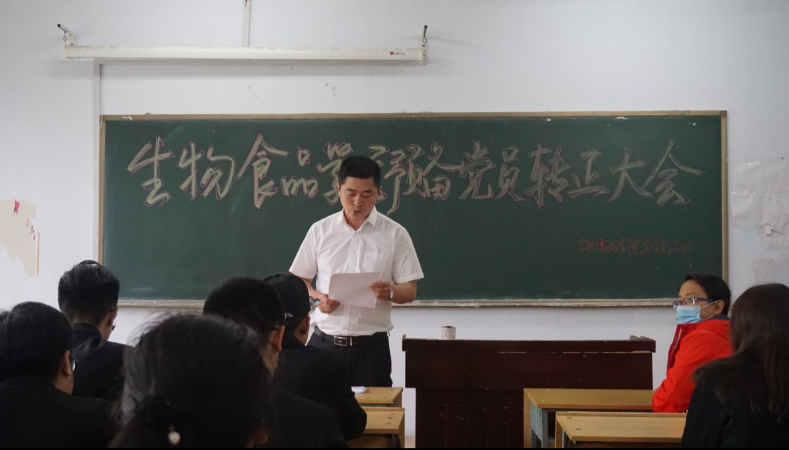 生物食品学院预备党员转正大会